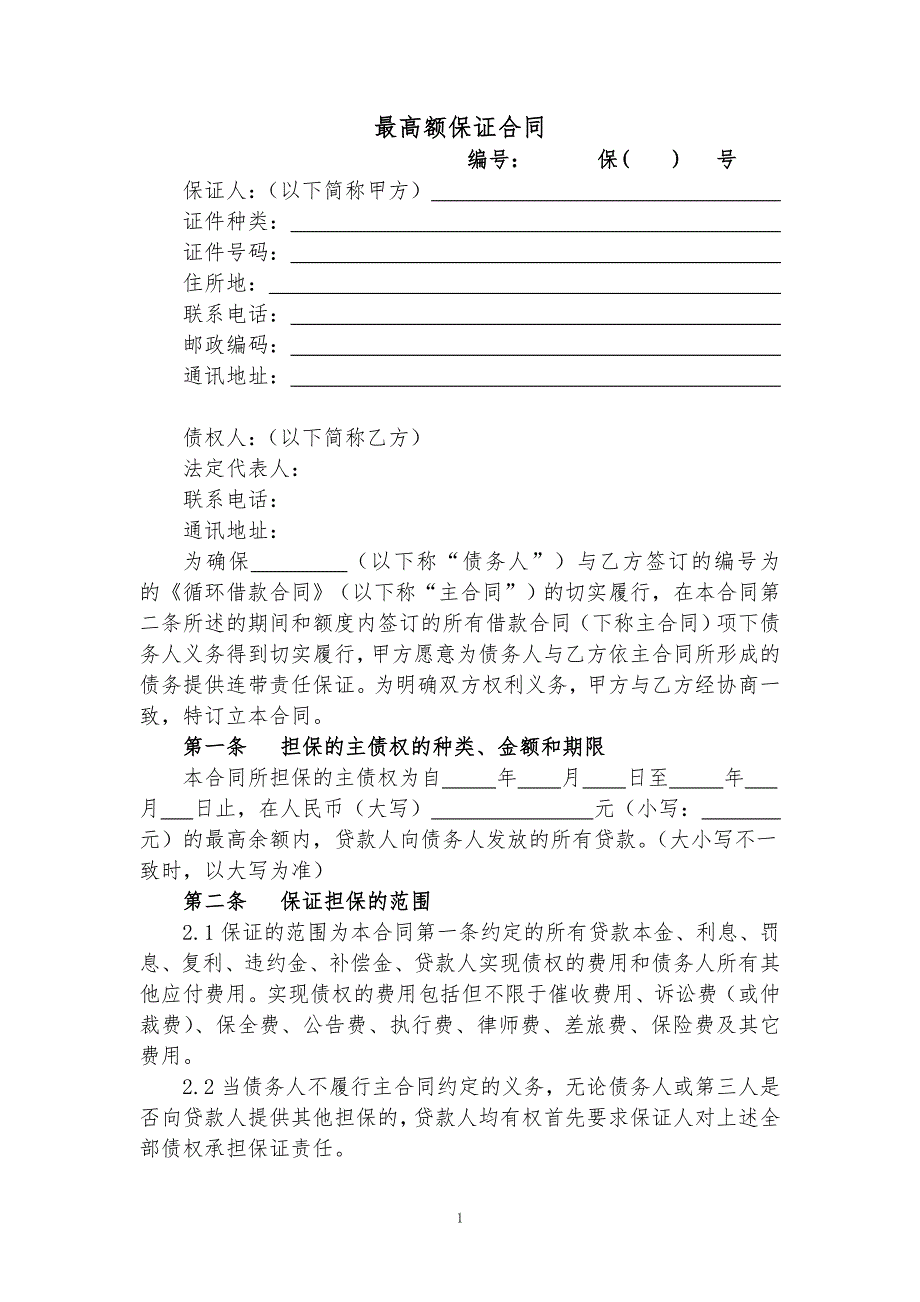 最高额保证合同
编号： 保( ) 号
保证人：（以下简称甲方）
证件种类：
证件号码：
住所地：
联系电话：
邮政编码：
通讯地址：
债权人：（以下简称乙方）
法定代表人：
联系电话：
通讯地址：
为确保_________（以下称“债务人”）与乙方签订的编号为
的《循环借款合同》（以下称“主合同”）的切实履行，在本合同第
二条所述的期间和额度内签订的所有借款合同（下称主合同）项下债
务人义务得到切实履行，甲方愿意为债务人与乙方依主合同所形成的
债务提供连带责任保证。为明确双方权利义务，甲方与乙方经协商一
致，特订立本合同。
第一条 担保的主债权的种类、金额和期限
本合同所担保的主债权为自_____年____月____日至_____年___
月___日止，在人民币（大写）__________________元（小写：_______
元）的最高余额内，贷款人向债务人发放的所有贷款。（大小写不一
致时，以大写为准）
第二条 保证担保的范围
2.1 保证的范围为本合同第一条约定的所有贷款本金、利息、罚
息、复利、违约金、补偿金、贷款人实现债权的费用和债务人所有其
他应付费用。实现债权的费用包括但不限于催收费用、诉讼费（或仲
裁费）、保全费、公告费、执行费、律师费、差旅费、保险费及其它
费用。
2.2 当债务人不履行主合同约定的义务，无论债务人或第三人是
否向贷款人提供其他担保的，贷款人均有权首先要求保证人对上述全
部债权承担保证责任。
1